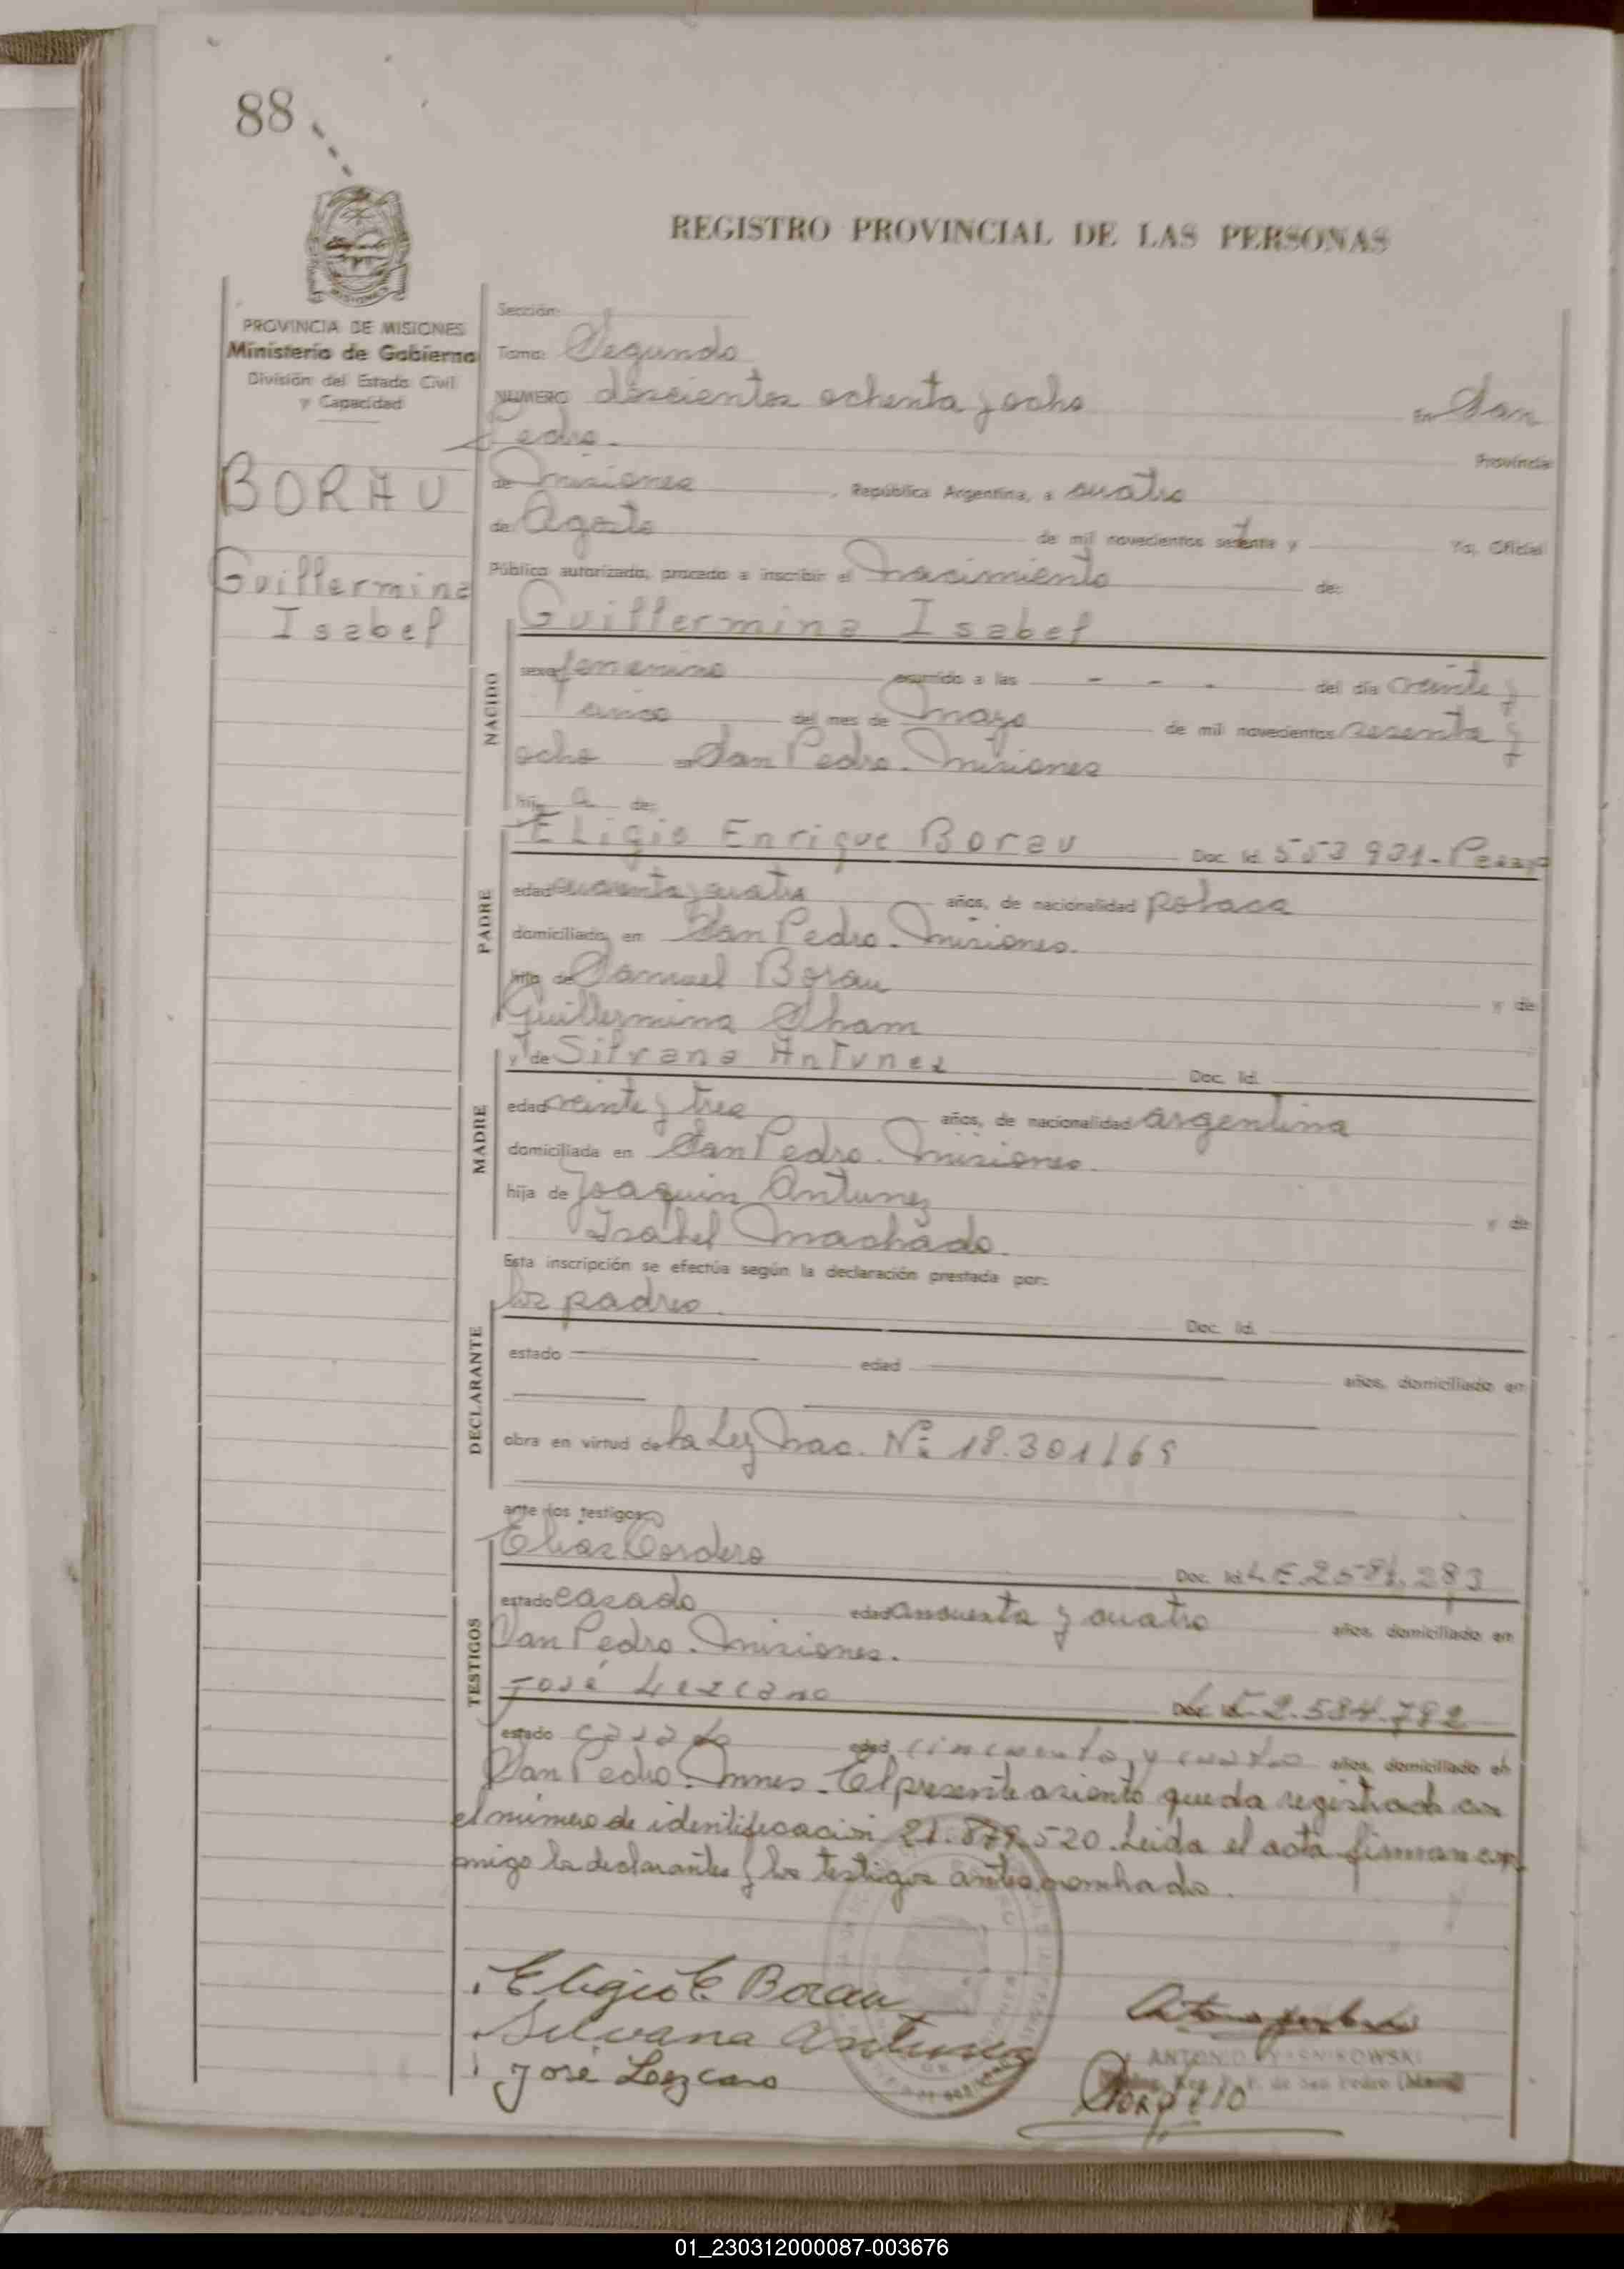 88
REGISTRO PROVINCIAL DE LAS PERSONAS
MISIONES
PROVINCIA DE MISIONES
Ministerio de Gobierno
División del Estado Civil
y Capacidad
BORAU
Guillermina
Isabel
Sección:
Tomo: Segundo
NUMERO doscientos ochenta y ocho en San
Pedro. Provincia
de Misiones, República Argentina, a cuatro
de Agosto de mil novecientos setenta y Yo, Oficial
Público autorizado, procedo a inscribir el nacimiento de:
NACIDO
Guillermina Isabel
sexo femenino ocurrido a las - - - del día veinte y
cinco del mes de mayo de mil novecientos sesenta y
ocho en San Pedro. Misiones
hij a de:
PADRE
Eligio Enrique Borau Doc. Id. 553 931-
edad cuarenta y cuatro años, de nacionalidad polaca
domiciliado en San Pedro. Misiones.
hijo de Samuel Borau y de
Guillermina Sham
MADRE
y de Silvana Antunez Doc. Id.
edad veinte y tres años, de nacionalidad argentina
domiciliada en San Pedro. Misiones.
hija de Joaquin Antunez y de
Isabel Machado.
Esta inscripción se efectúa según la declaración prestada por:
DECLARANTE
los padres. Doc. Id.
estado edad años, domiciliado en
obra en virtud de la Ley Nac. Nº 18.301/69
ante los testigos
TESTIGOS
Elias Cordero Doc. Id. L E 2584.283
estado casado edad cincuenta y cuatro años, domiciliado en
San Pedro. Misiones.
José Lezcano Doc. Id. L E 2.584.782
estado casado edad cincuenta y cuatro años, domiciliado en
San Pedro. Mnes. El presente asiento queda registrado con
el número de identificación 21.879.520. Leida el acta firman con-
migo los declarantes y los testigos antes nombrados.
Eligio E. Borau
Silvana Antunez
José Lezcano
ANTONIO YASNIKOWSKI
de San Pedro
01_230312000087-003676